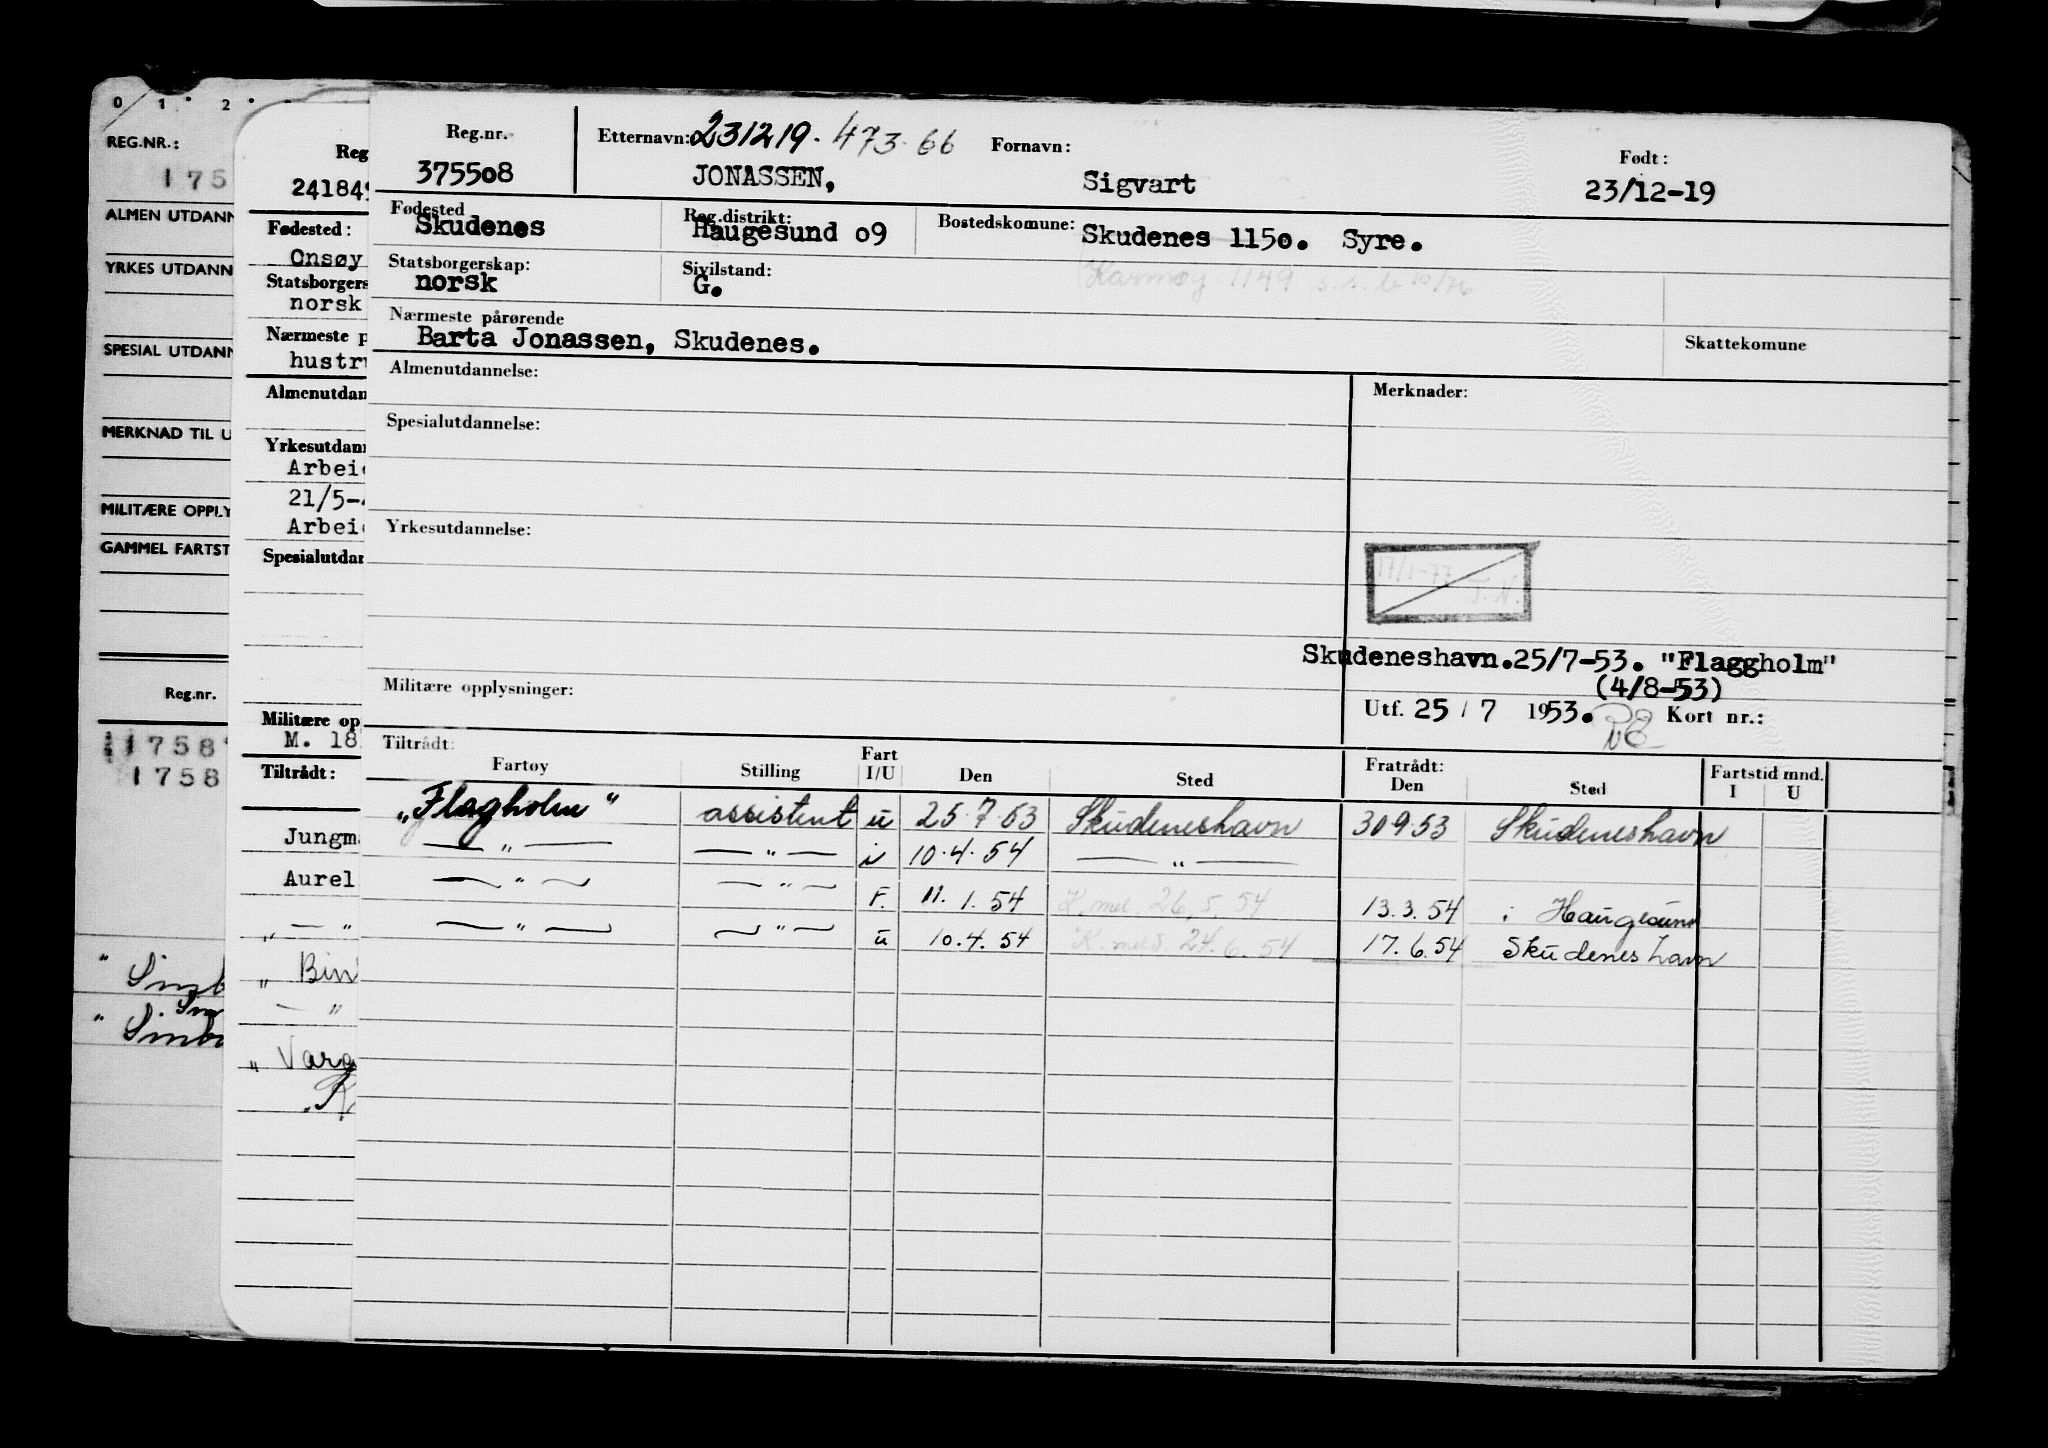 0 1 2
REG.NR.:
175
ALMEN UTDANN
YRKES UTDANN
SPESIAL UTDANN
MERKNAD TIL U
MILITÆRE OPPLY
GAMMEL FARTST
Reg.nr.
1758
1758
Reg
24184
Fødested:
Onsøy
Statsborgers
norsk
Nærmeste p
hustru
Almenutdan
Yrkesutdann
Arbeid
21/5-
Arbeid
Spesialutdan
Militære op
M. 18
Tiltrådt:
Jungm
Aurel
„ — "
„ Bin
— "
„ Varg
Reg.nr.
375508
Etternavn: 231219. 473.66
JONASSEN,
Fornavn:
Sigvart
Født:
23/12-19
Fødested
Skudenes
Reg.distrikt:
Haugesund 09
Bostedskomune: Skudenes 1150. Syre.
Karmøy 1149 s.s.b 10/76
Statsborgerskap:
norsk
Sivilstand:
G.
Nærmeste pårørende
Barta Jonassen, Skudenes.
Skattekomune
Almenutdannelse:
Merknader:
Spesialutdannelse:
Yrkesutdannelse:
17/1-77 T.N.
Skudeneshavn.25/7-53. "Flaggholm"
(4/8-53)
Militære opplysninger:
Utf. 25 / 7 1953. Kort nr.:
Tiltrådt: Fratrådt:
Fartøy Stilling Fart I/U Den Sted Den Sted Fartstid mnd. I U
„Flagholm" assistent u 25.7.53 Skudeneshavn 30953 Skudeneshavn
— „ — — " — i 10.4.54 — " —
— " — — " — F. 11.1.54 K.mel. 26.5.54 13.3.54 i Haugesund
— " — — " — u 10.4.54 K.meld. 24.6.54 17.6.54 Skudeneshavn